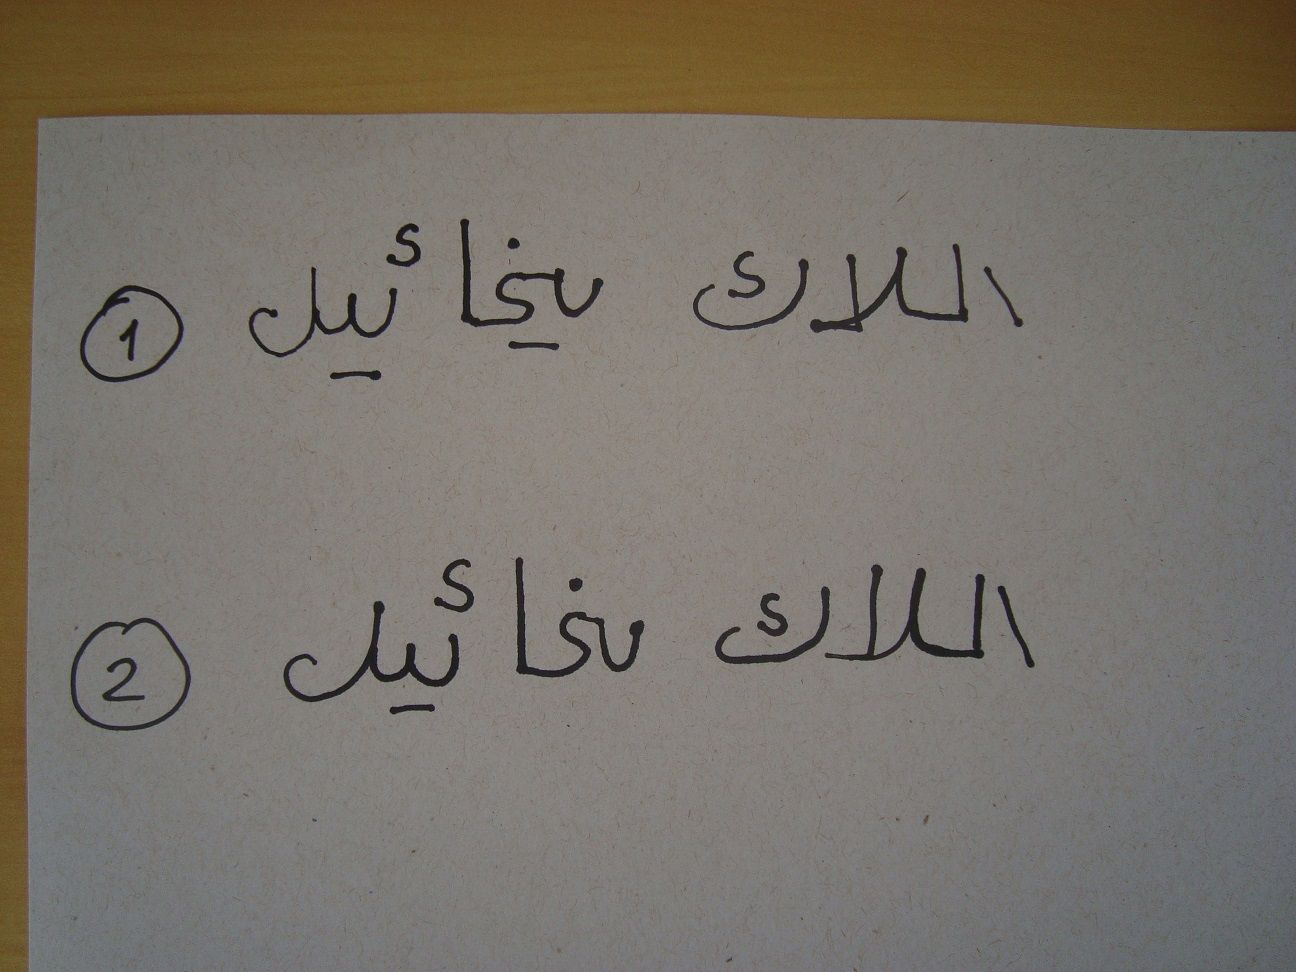 ① اللاك ميخائيل
② اللاك مخائيل